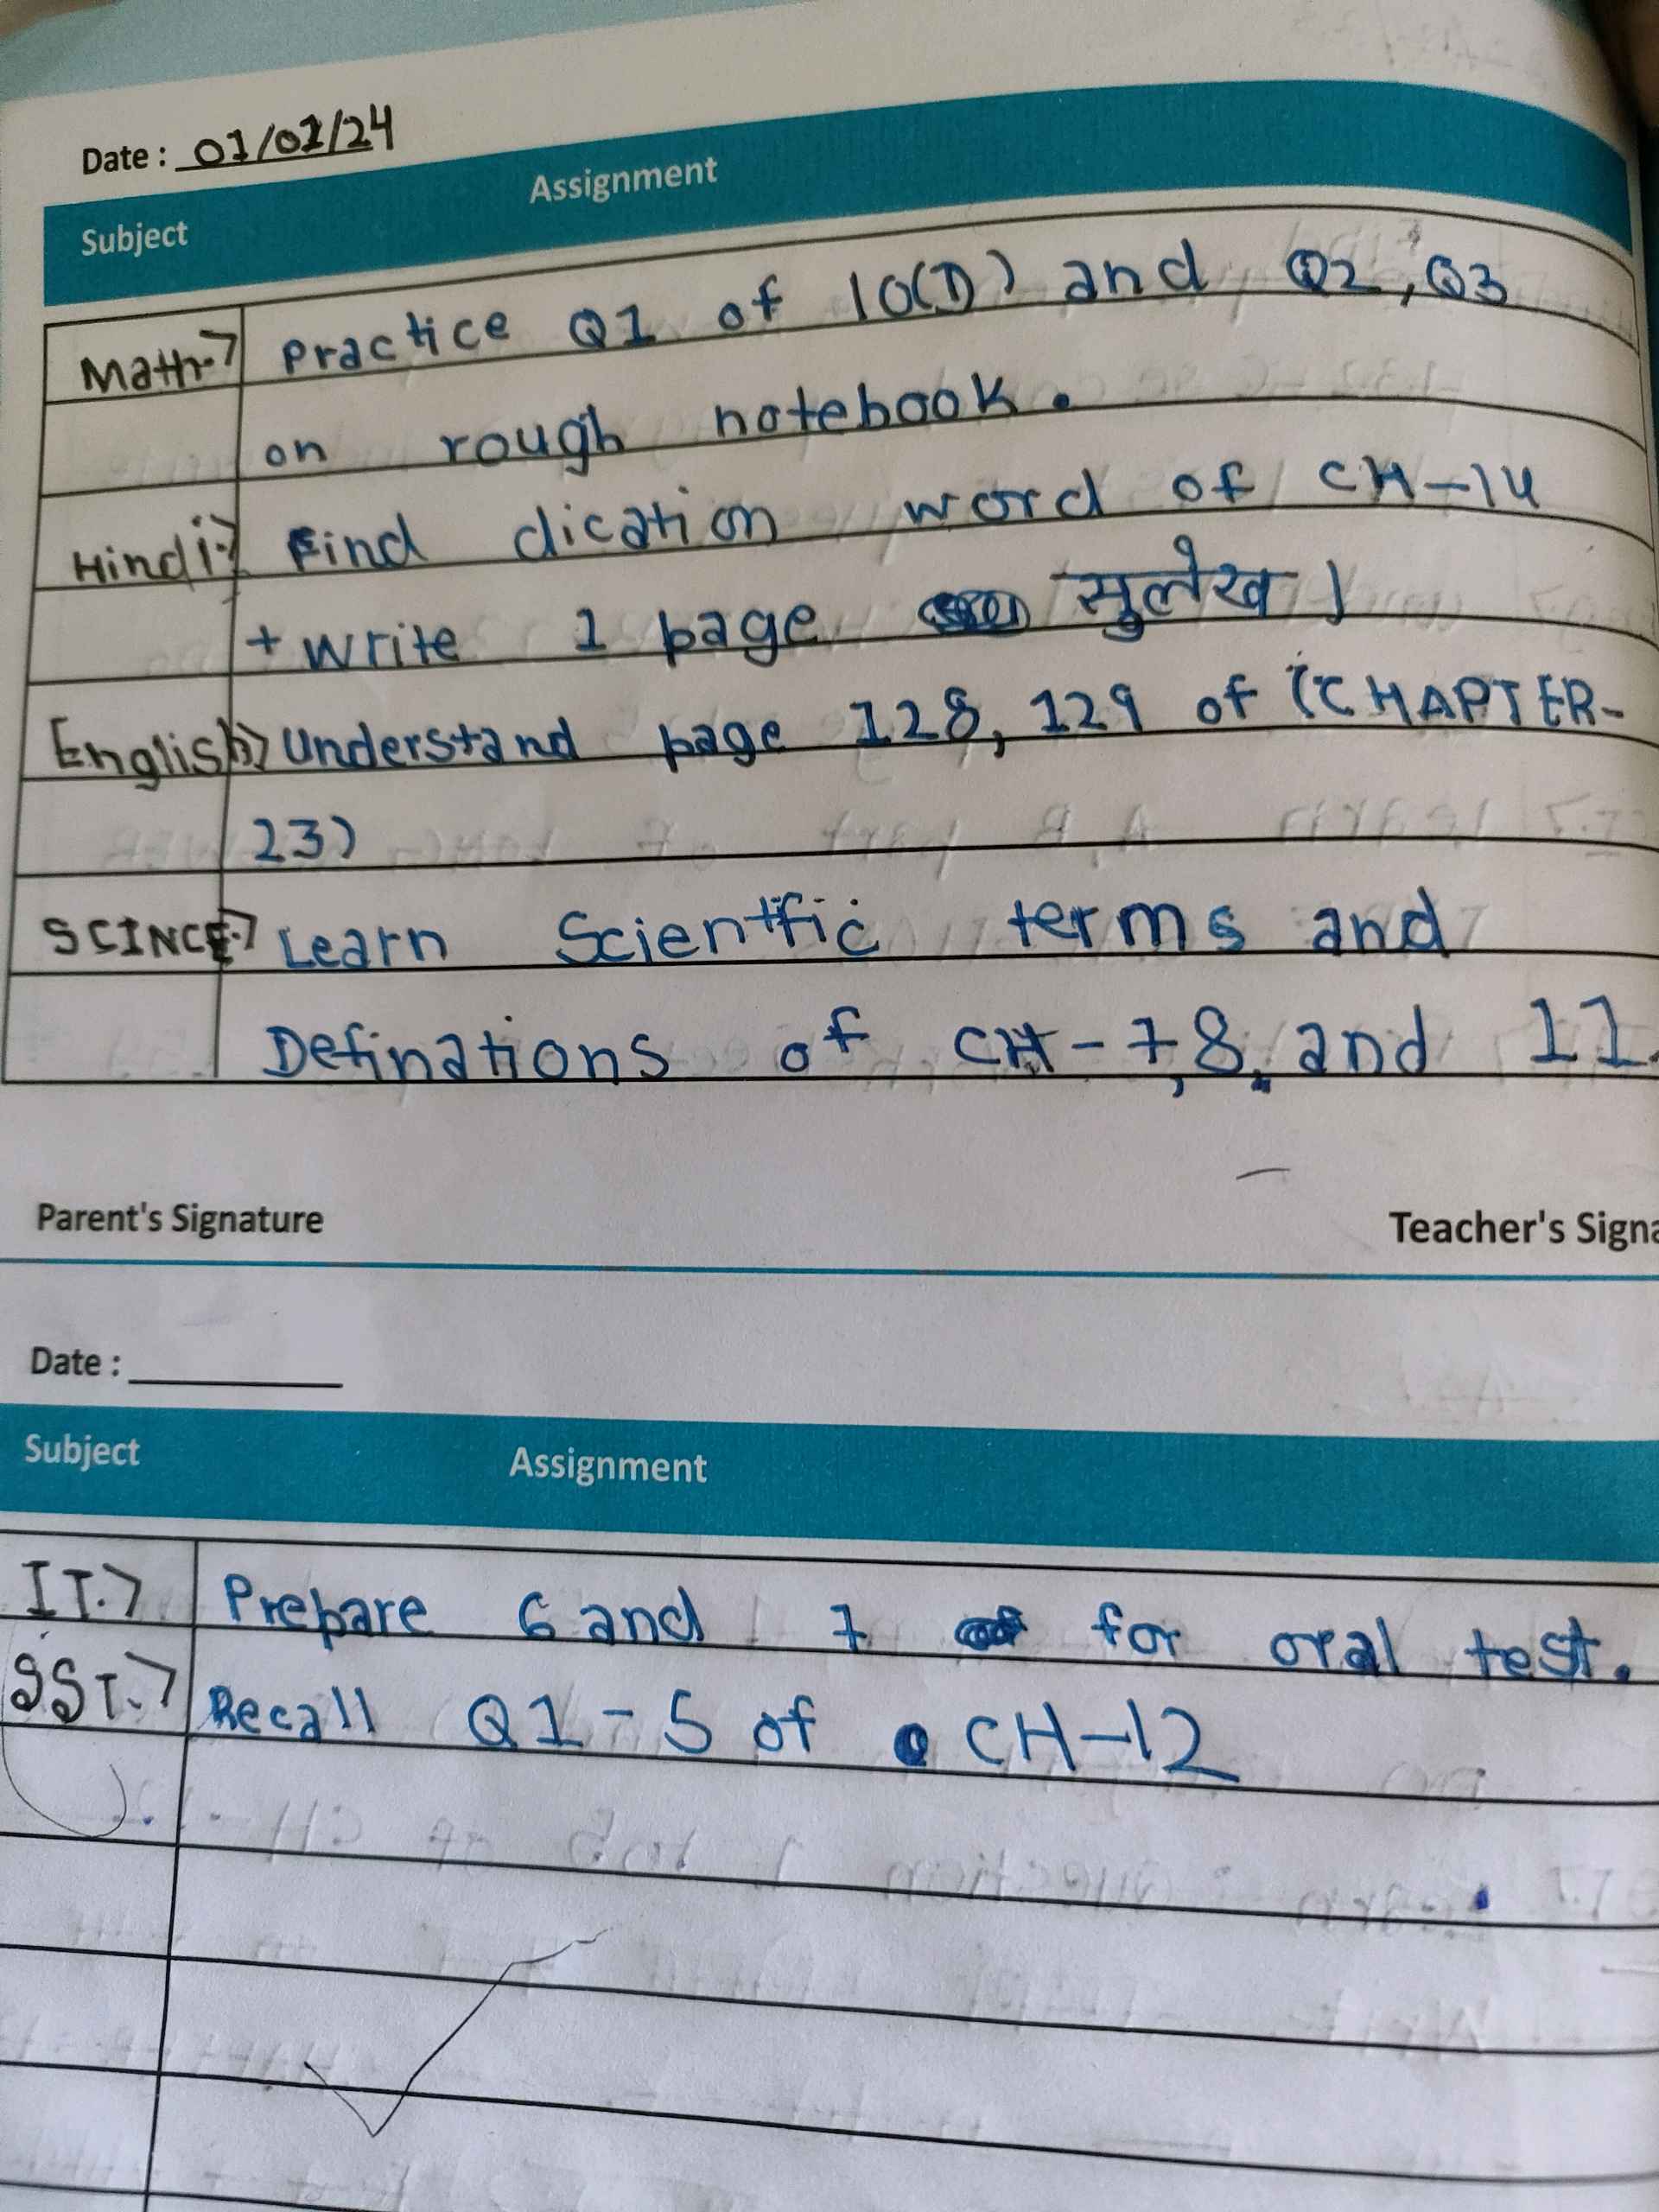 Date : 01/02/24
Subject Assignment
Math.> Practice Q1 of 10(D) and Q2, Q3
on rough notebook.
Hindi.> Find dication word of CH-14
+ write 1 page सुलेख।
English.> Understand page 128, 129 of (CHAPTER-
23)
SCINCE.> Learn Scientfic terms and
Definations of CH-7,8, and 11.
Parent's Signature Teacher's Signa
Date :
Subject Assignment
IT.> Prepare 6 and 7 for oral test.
SST.> Recall Q1-5 of CH-12